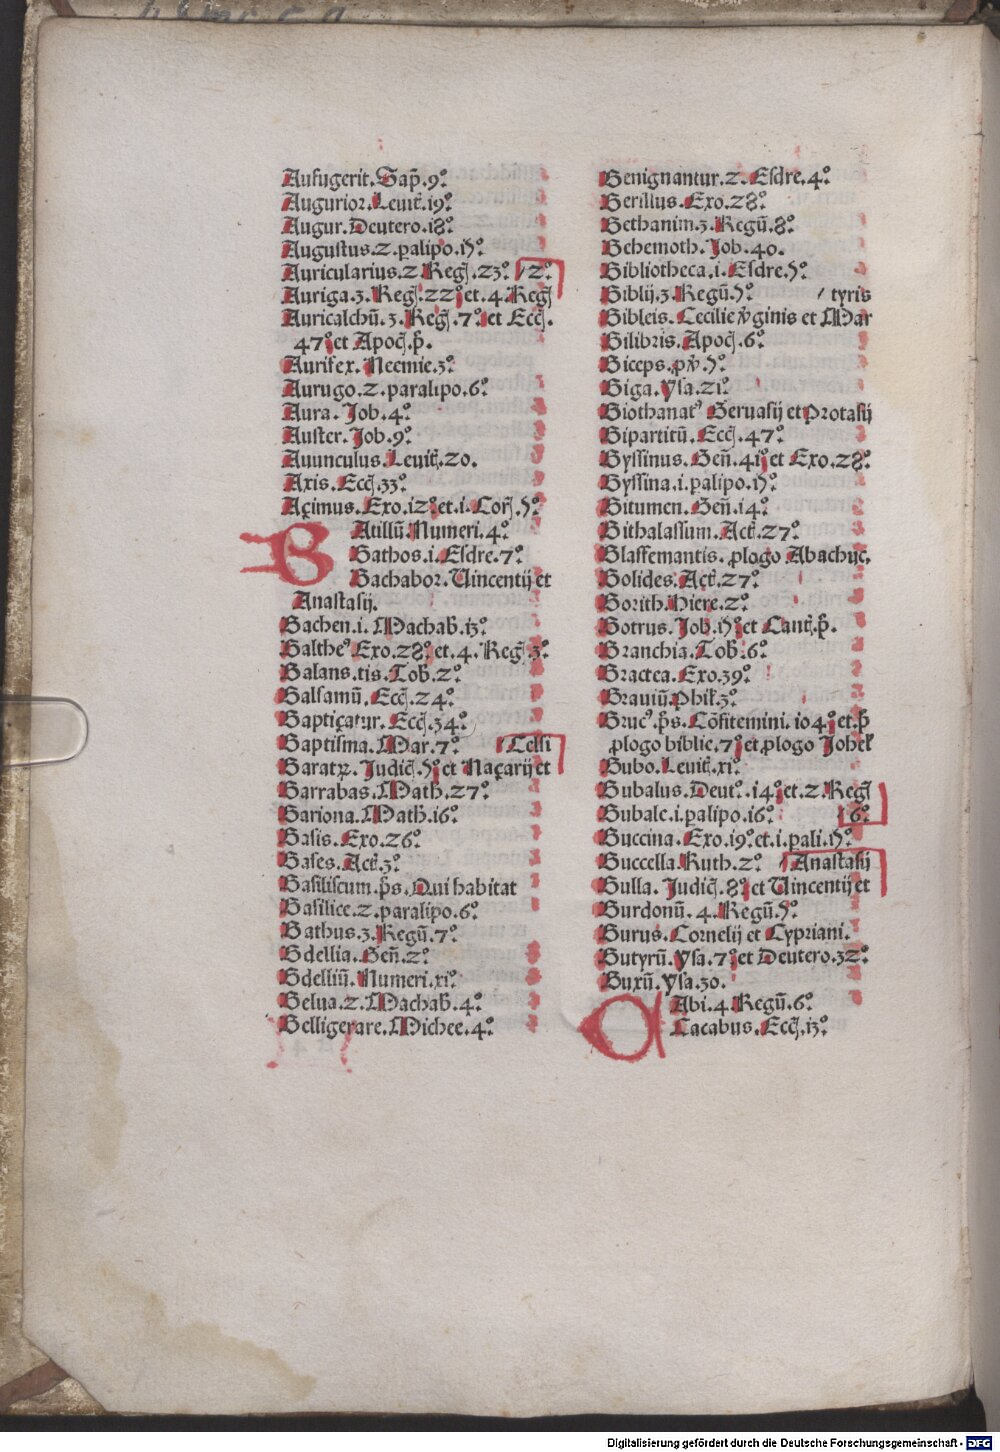 Aufugerit. Sap̄. 9°.
Augurior. Leuit̄. 19°.
Augur. Deutero. 18°.
Augustus. 2. ꝑalipo. 15°.
Auricularius. 2 Regꝫ. 23°. / 2°.
Auriga. 3. Regꝫ. 22°. et. 4. Regꝫ
Auricalchū. 3. Regꝫ. 7°. et Eccꝫ.
47°. et Apocꝫ. p̄.
Aurifex. Neemie. 3°.
Aurugo. 2. paralipo. 6°.
Aura. Job. 4°.
Auster. Job. 9°.
Auunculus. Leuit̄. 20.
Axis. Eccꝫ. 33°.
Açimus. Exo. 12°. et. i. Corꝫ. 5°.
BAtillū. Numeri. 4°.
Bathos. i. Esdre. 7°.
Bachabor. Uincentij et
Anastasij.
Bachen. i. Machab̄. 13°.
Baltheꝰ Exo. 28°. et. 4. Regꝫ. 3°.
Balans. tis. Tob̄. 2°.
Balsamū. Eccꝫ. 24°.
Baptiçatur. Eccꝫ. 34°.
Baptisma. Mar. 7°. / Celsi
Baratꝝ. Judicꝫ. 5°. et Naçarij et
Barrabas. Math̄. 27°.
Bariona. Math̄. 16°.
Basis. Exo. 26°.
Bases. Act̄. 3°.
Basiliscum. p̄s. Qui habitat
Basilice. 2. paralipo. 6°.
Bathus. 3. Regū. 7°.
Bdellia. Gen̄. 2°.
Bdelliū. Numeri. xi°.
Belua. 2. Machab̄. 4°.
Belligerare. Michee. 4°.
Benignantur. 2. Esdre. 4°.
Berillus. Exo. 28°.
Bethanim. 3. Regū. 8°.
Behemoth. Job. 40.
Bibliotheca. i. Esdre. 5°.
Biblij. 3. Regū. 5°. / tyris
Bibleis. Cecilie v̄ginis et Mar
Bilibris. Apocꝫ. 6°.
Biceps. ꝓv̄. 5°.
Biga. ysa. 21°.
Biothanatꝰ Geruasij et protasij
Bipartitū. Eccꝫ. 47°.
Byssinus. Gen̄. 41°. et Exo. 28°.
Byssina. i. ꝑalipo. 15°.
Bitumen. Gen̄. 14°.
Bithalassum. Act̄. 27°.
Blasfemantis. ꝓlogo Abachuc.
Bolides. Act̄. 27°.
Borith. Hiere. 2°.
Botrus. Job. 15°. et Cant̄. p̄.
Branchia. Tob̄. 6°.
Bractea. Exo. 39°.
Brauiū. Phil̄. 3°.
Brucꝰ. p̄s. Cōfitemini. 104°. et. p̄
ꝓlogo biblie. 7°. et ꝓlogo Johel̄
Bubo. Leuit̄. xi°.
Bubalus. Deut̄°. 14°. et. 2. Regꝫ
Bubale. i. ꝑalipo. 16°. / 6°.
Buccina. Exo. 19°. et. i. pali. 15°.
Buccella. Ruth. 2°. / Anastasij
Bulla. Judicꝫ. 8°. et Uincentij et
Burdonū. 4. Regū. 5°.
Burus. Cornelij et Cypriani.
Butyrū. ysa. 7°. et Deutero. 32°.
Buxū. ysa. 30.
CAbi. 4. Regū. 6°.
Cacabus. Eccꝫ. 13°.
Digitalisierung gefördert durch die Deutsche Forschungsgemeinschaft - DFG